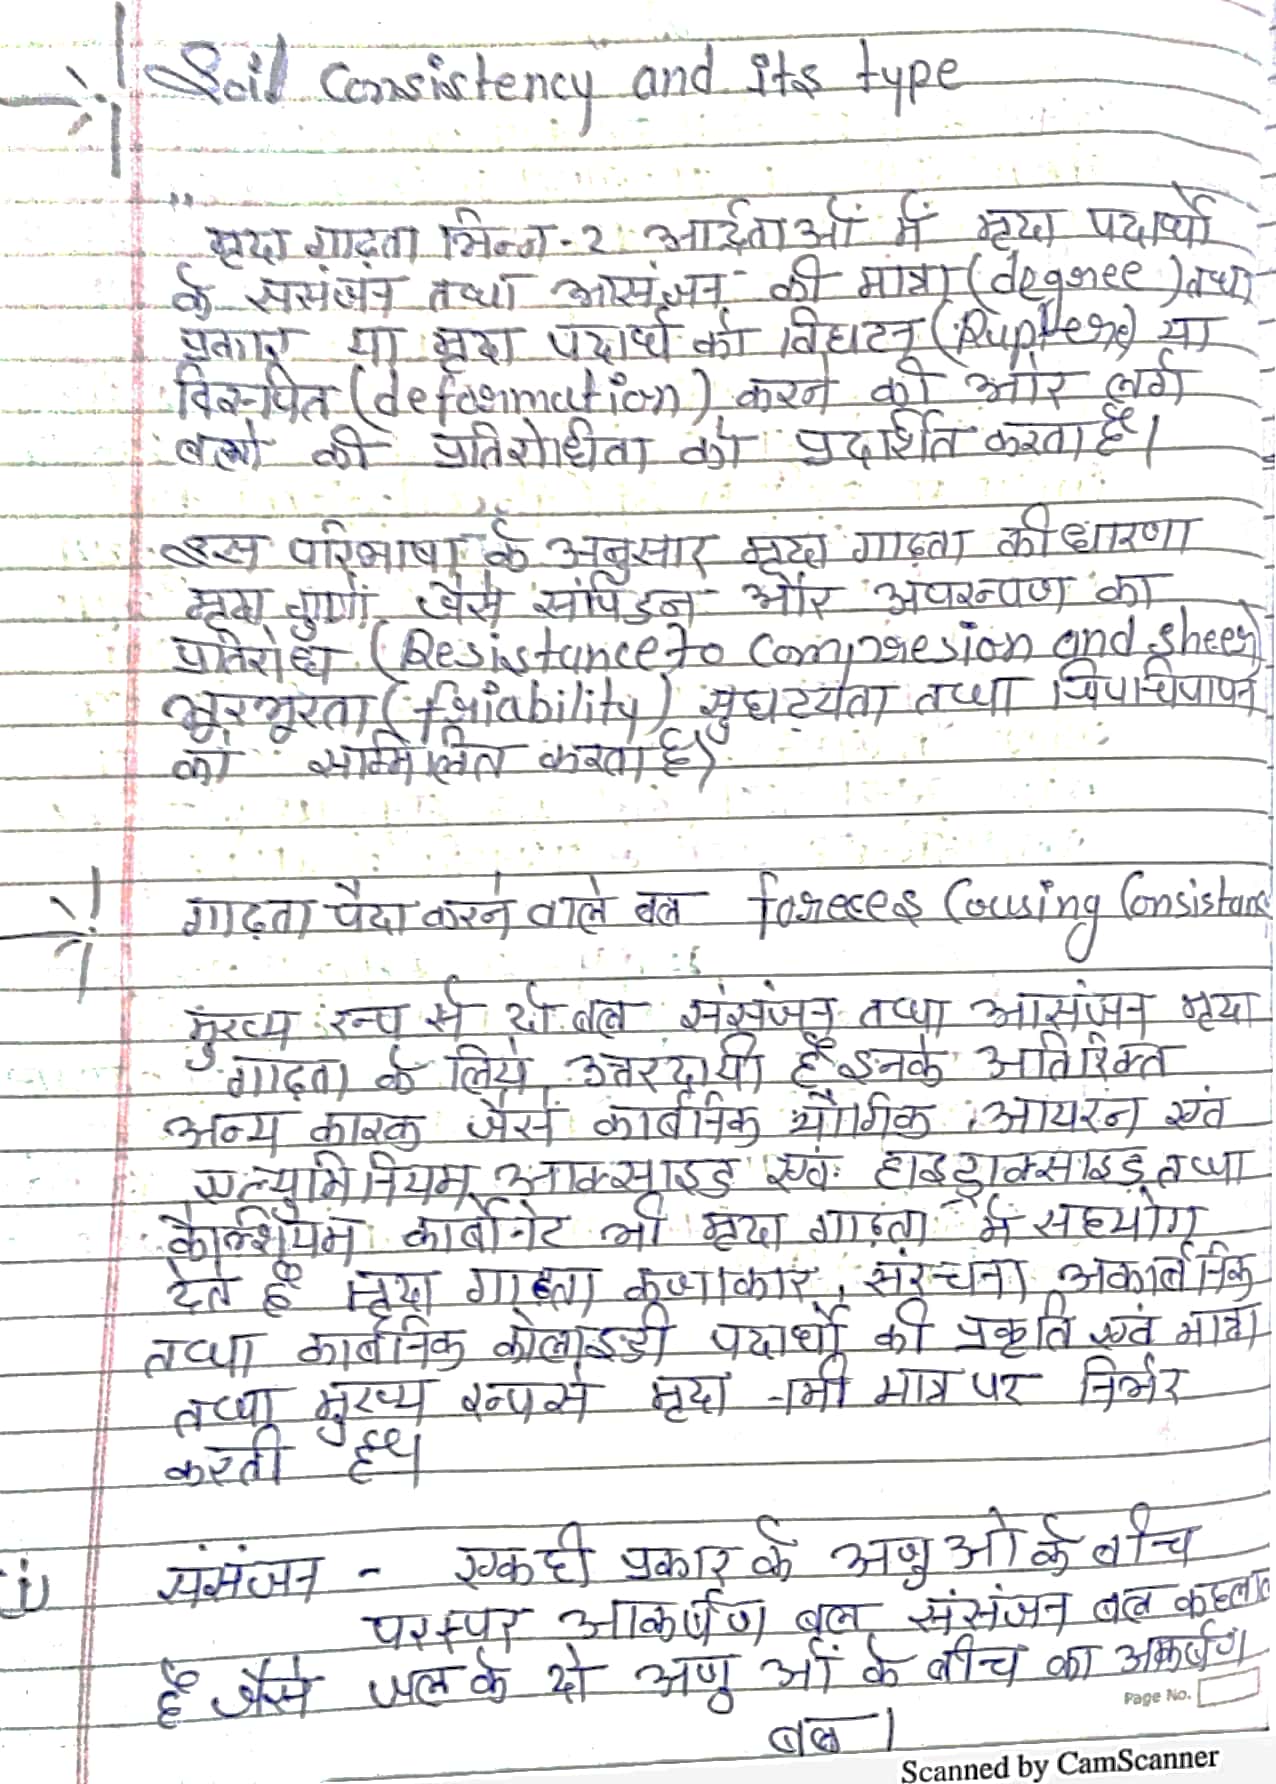 Soil Consistency and its type
"मृदा गाढ़ता भिन्न-२ आर्द्रताओं में मृदा पदार्थो
के ससंजन तथा आसंजन की मात्रा (degree) तथा
प्रकार या मृदा पदार्थ को विघटन (Rupture) या
विरूपित (deformation) करने की ओर लगे
बलो की प्रतिरोधीता को प्रदर्शित करता है।
इस परिभाषा के अनुसार मृदा गाढ़ता की धारणा
मृदा गुणों जैसे संपिडन और अपरूपण का
प्रतिरोध (Resistance to compresion and sheer)
भुरभुरता (friability) सुघट्यता तथा चिपचिपापन
को सम्मिलित करता है)
गाढ़ता पैदा करने वाले बल foreces Cousing Consistanc
मुख्य रूप से दो बल संसंजन तथा आसंजन मृदा
गाढ़ता के लिये उत्तरदायी हैं इनके अतिरिक्त
अन्य कारक जैसे कार्बनिक यौगिक, आयरन एवं
एल्युमिनियम आक्साइड एवं हाइड्राक्साइड तथा
कैल्शियम कार्बोनेट भी मृदा गाढ़ता में सहयोग
देते हैं मृदा गाढ़ता कणाकार, संरचना अकार्बनिक
तथा कार्बनिक कोलाइडी पदार्थो की प्रकृति एवं मात्रा
तथा मुख्य रूप से मृदा नमी मात्र पर निर्भर
करती है।
i) संसंजन - एक ही प्रकार के अणुओ के बीच
परस्पर आकर्षण बल संसंजन बल कहलात
है जैसे जल के दो अणुओं के बीच का आकर्षण
बल।
Page No.
Scanned by CamScanner